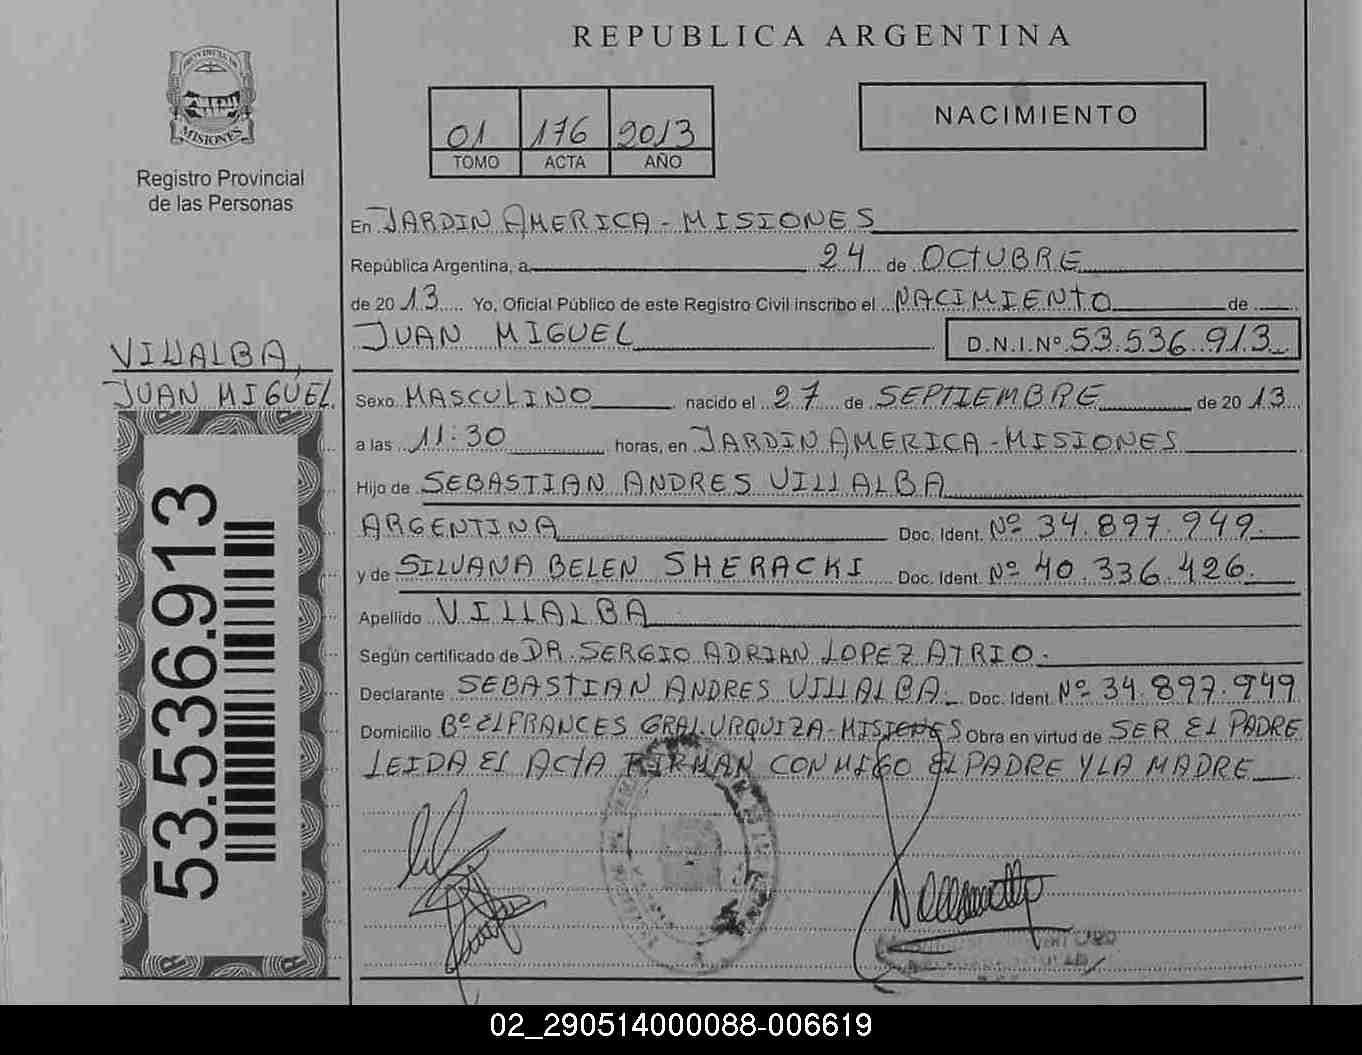 REPUBLICA ARGENTINA
PROVINCIA DE
MISIONES
Registro Provincial
de las Personas
01 176 2013
TOMO ACTA AÑO
NACIMIENTO
En JARDIN AMERICA - MISIONES
República Argentina, a 24 de OCTUBRE
de 2013 Yo, Oficial Público de este Registro Civil inscribo el NACIMIENTO de
JUAN MIGUEL D.N.I.Nº 53.536.913
VILLALBA,
JUAN MIGUEL
53.536.913
Sexo MASCULINO nacido el 27 de SEPTIEMBRE de 2013
a las 11:30 horas, en JARDIN AMERICA - MISIONES
Hijo de SEBASTIAN ANDRES VILLALBA
ARGENTINA Doc. Ident. Nº 34.897.949.
y de SILVANA BELEN SHERACKI Doc. Ident. Nº 40.336.426.
Apellido VILLALBA
Según certificado de DR. SERGIO ADRIAN LOPEZ ATRIO.
Declarante SEBASTIAN ANDRES VILLALBA. Doc. Ident. Nº 34.897.949
Domicilio Bº EL FRANCES GRAL URQUIZA - MISIONES Obra en virtud de SER EL PADRE
LEIDA EL ACTA FIRMAN CONMIGO EL PADRE Y LA MADRE
02_290514000088-006619